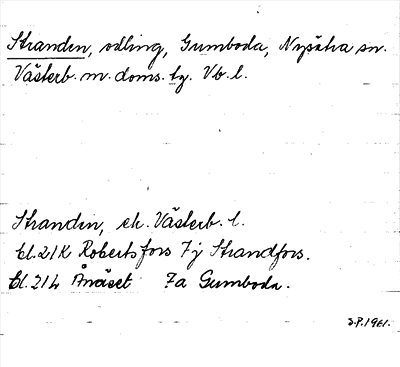 Stranden, odling, Gumboda, Nysätra sn.
Västerb. m. doms. tg. Vb. l.
Stranden, ek. Västerb. l.
bl. 21K Robertsfors 7j Strandfors.
bl. 21L Ånäset 7a Gumboda.
S.P. 1961.